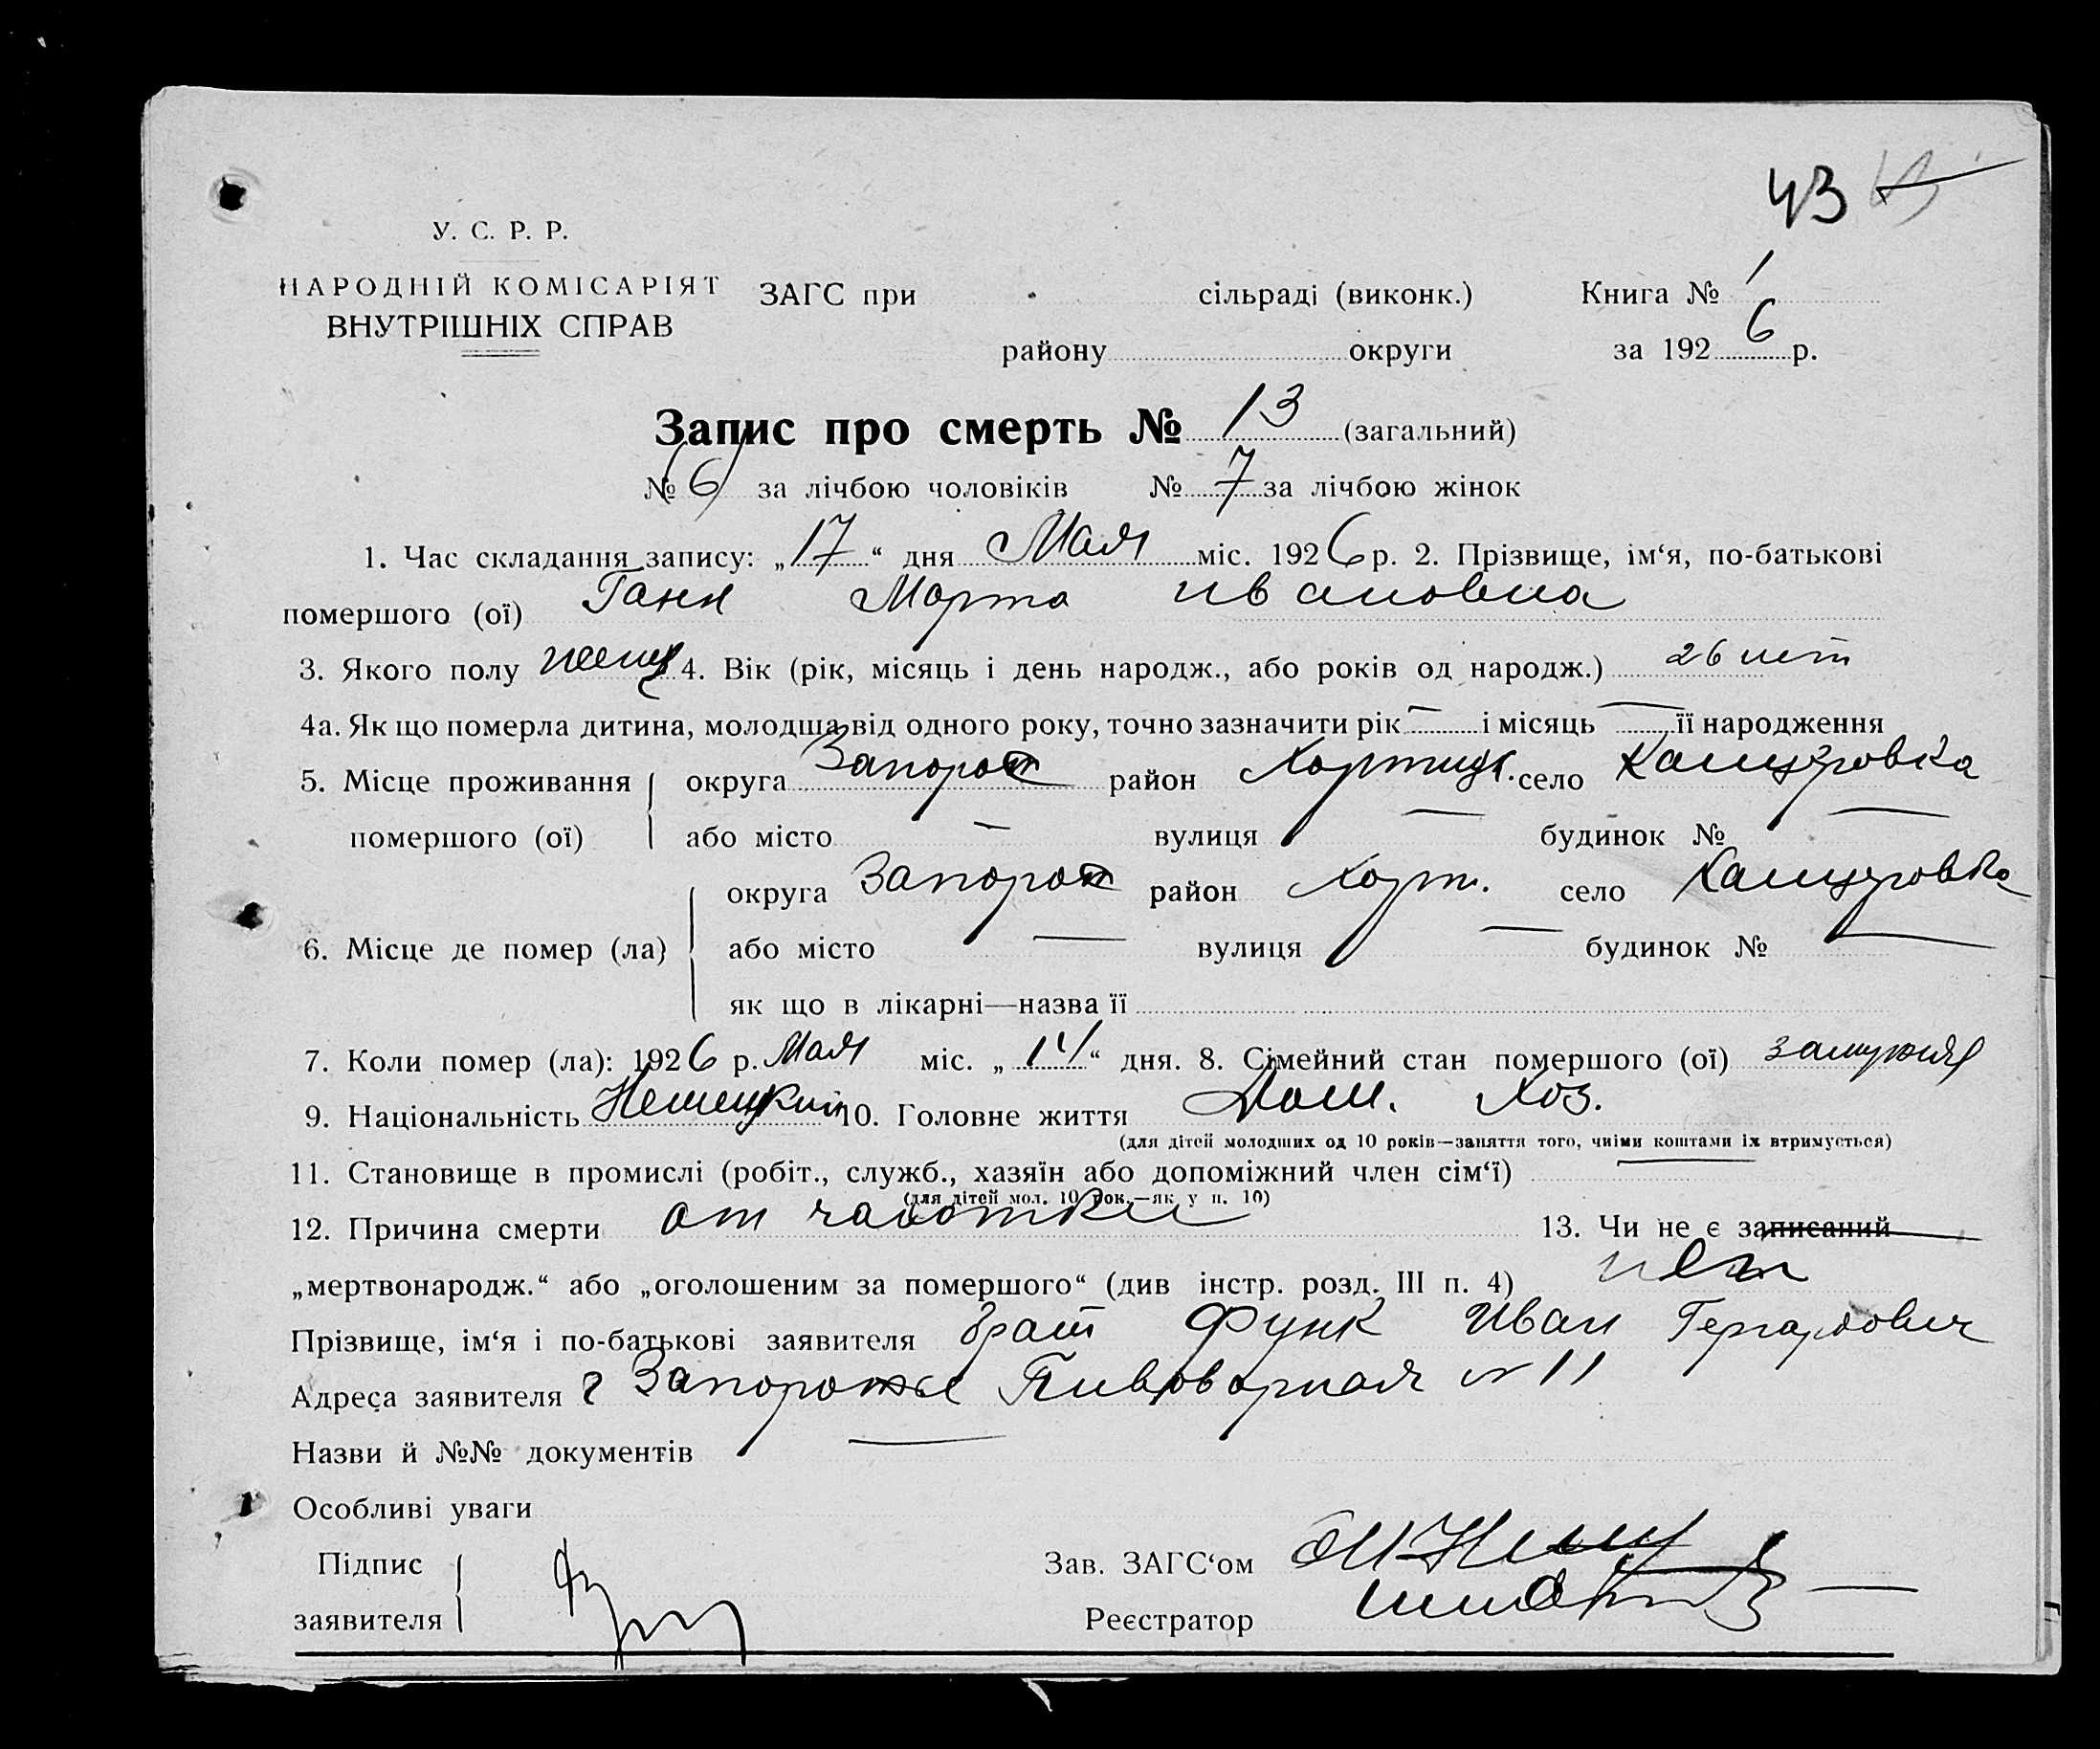 43
У. С. Р. Р.
НАРОДНІЙ КОМІСАРІЯТ
ВНУТРІШНІХ СПРАВ
ЗАГС при сільраді (виконк.) Книга № 1
району округи за 1926 р.
Запис про смерть № 13 (загальний)
№ 6 за лічбою чоловіків № 7 за лічбою жінок
1. Час складання запису: „17“ дня Мая міс. 1926 р. 2. Прізвище, ім‘я, по-батькові
помершого (ої) Ганн Марта Ивановна
3. Якого полу женщ 4. Вік (рік, місяць і день народж., або років од народж.) 26 лет
4а. Як що померла дитина, молодша від одного року, точно зазначити рік — і місяць — її народження
5. Місце проживання округа Запорож район Хортицк. село Канцеровка
помершого (ої) або місто — вулиця — будинок № —
округа Запорож район Хорт. село Канцеровка
6. Місце де помер (ла) або місто — вулиця — будинок № —
як що в лікарні—назва її
7. Коли помер (ла): 1926 р. Мая міс. „14“ дня. 8. Сімейний стан помершого (ої) замужняя
9. Національність Немецкий 10. Головне життя Дом. Хоз.
(для дітей молодших од 10 років—заняття того, чиїми коштами їх втримується)
11. Становище в промислі (робіт., служб., хазяїн або допоміжний член сім‘ї) —
(для дітей мол. 10 рок.—як у п. 10)
12. Причина смерти от чахотки 13. Чи не є записаний
„мертвонародж.“ або „оголошеним за помершого“ (див інстр. розд. III п. 4) нет
Прізвище, ім‘я і по-батькові заявителя брат Функ Иван Гергардович
Адреса заявителя г Запорожье Пивоварная № 11
Назви й №№ документів —
Особливі уваги
Підпис Зав. ЗАГС‘ом
заявителя Реєстратор